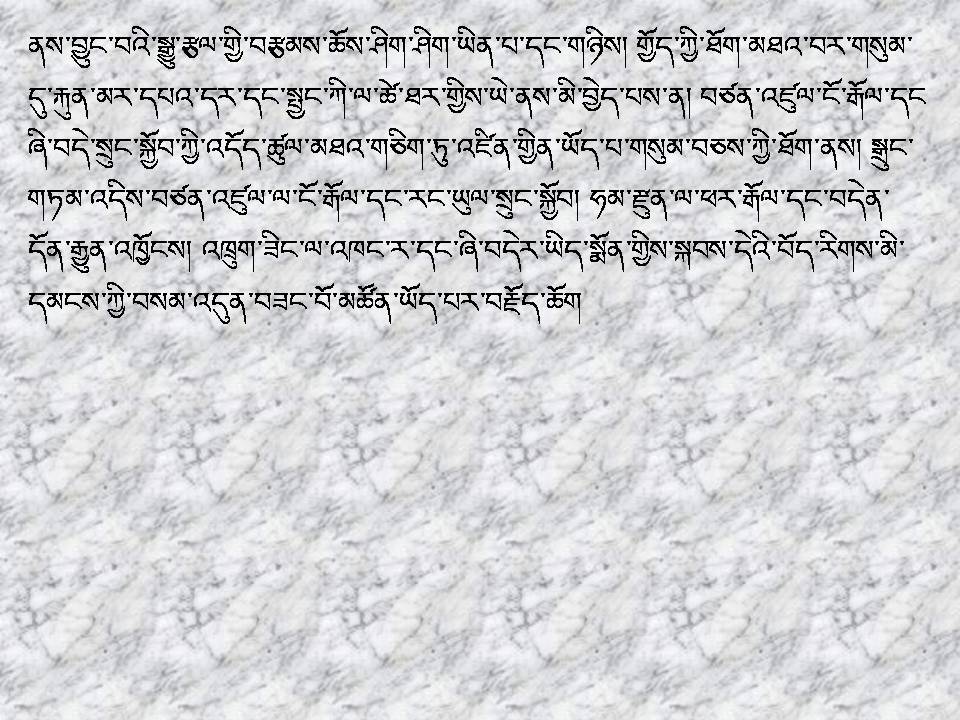 ནས་བྱུང་བའི་སྒྱུ་རྩལ་གྱི་བརྩམས་ཆོས་ཤིག་ཤིག་ཡིན་པ་དང་གཉིས། ཀྱོད་ཀྱི་ཐོག་མཐའ་བར་གསུམ་
དུ་རྐུན་མར་དཔའ་དར་དང་སྤྱང་ཀི་ལ་ཚེ་ཐར་གྱིས་ཡེ་ནས་མི་བྱེད་པས་ན། བཙན་འཛུལ་ངོ་རྒོལ་དང
ཞི་བདེ་སྲུང་སྐྱོབ་ཀྱི་འདོད་ཚུལ་མཐའ་གཅིག་ཏུ་འཛིན་གྱིན་ཡོད་པ་གསུམ་བཅས་ཀྱི་ཐོག་ནས། སྒྲུང་
གཏམ་འདིས་བཙན་འཛུལ་ལ་ངོ་རྒོལ་དང་རང་ཡུལ་སྲུང་སྐྱོབ། ཧམ་རྫུན་ལ་ཕར་རྒོལ་དང་བདེན་
དོན་རྒྱུན་འཁྱོངས། འཁྲུག་ཟིང་ལ་འཁང་ར་དང་ཞི་བདེར་ཡིད་སྨོན་གྱིས་སྐབས་དེའི་བོད་རིགས་མི་
དམངས་ཀྱི་བསམ་འདུན་བཟང་པོ་མཚོན་ཡོད་པར་བརྗོད་ཆོག